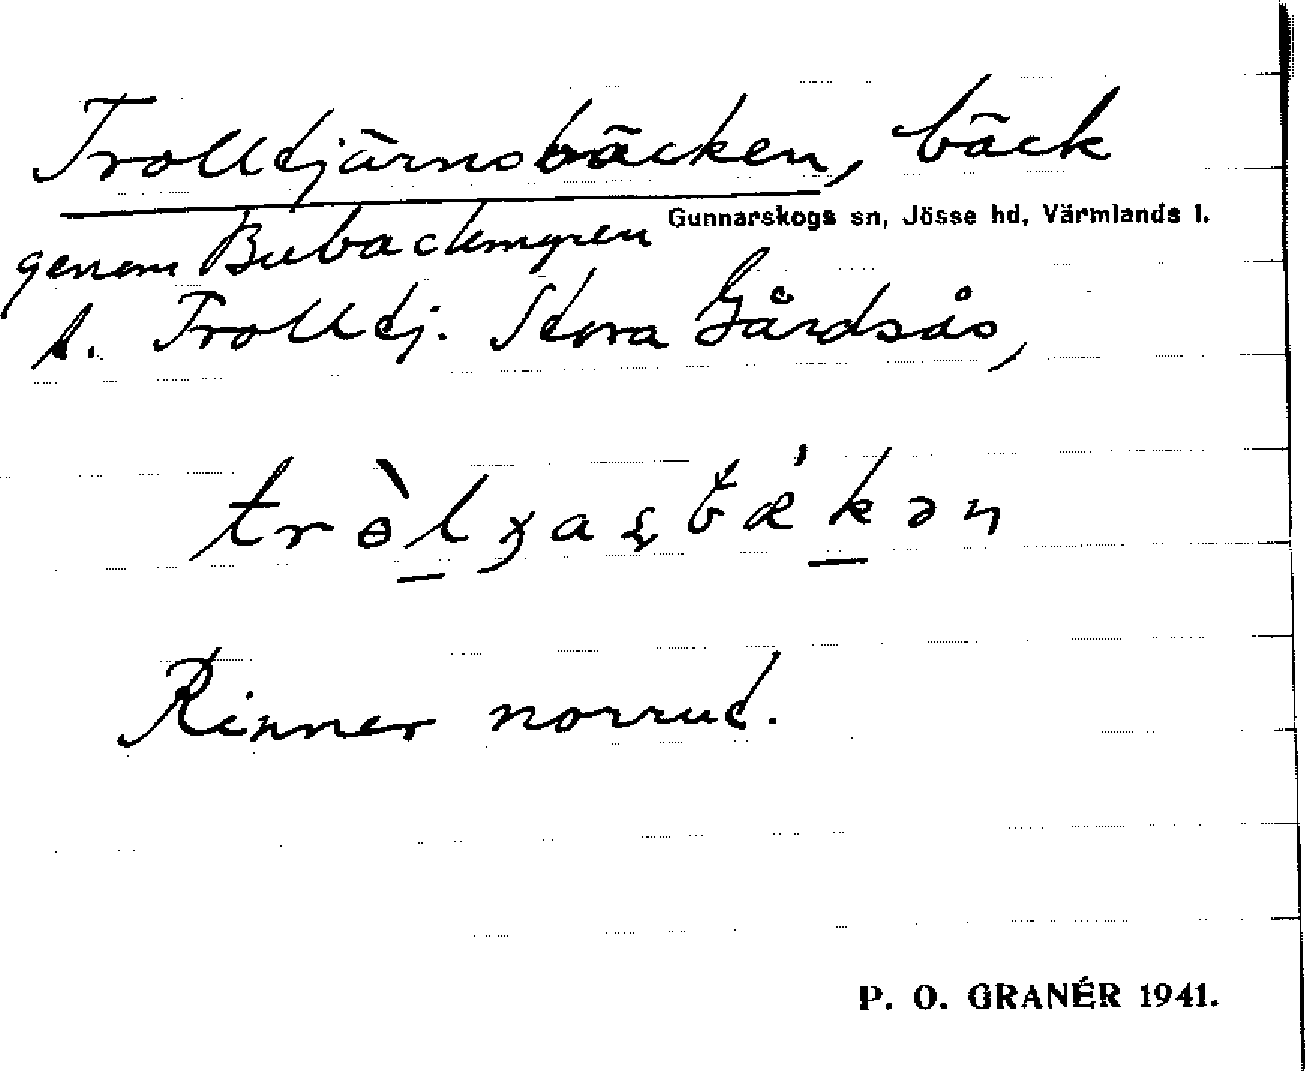 Trolltjärnsbäcken, bäck
Gunnarskogs sn, Jösse hd, Värmlands l.
genom Bubackmyren
t. Trolltj. Stora Gårdsås,
Rinner norrut.
P. O. GRANÉR 1941.